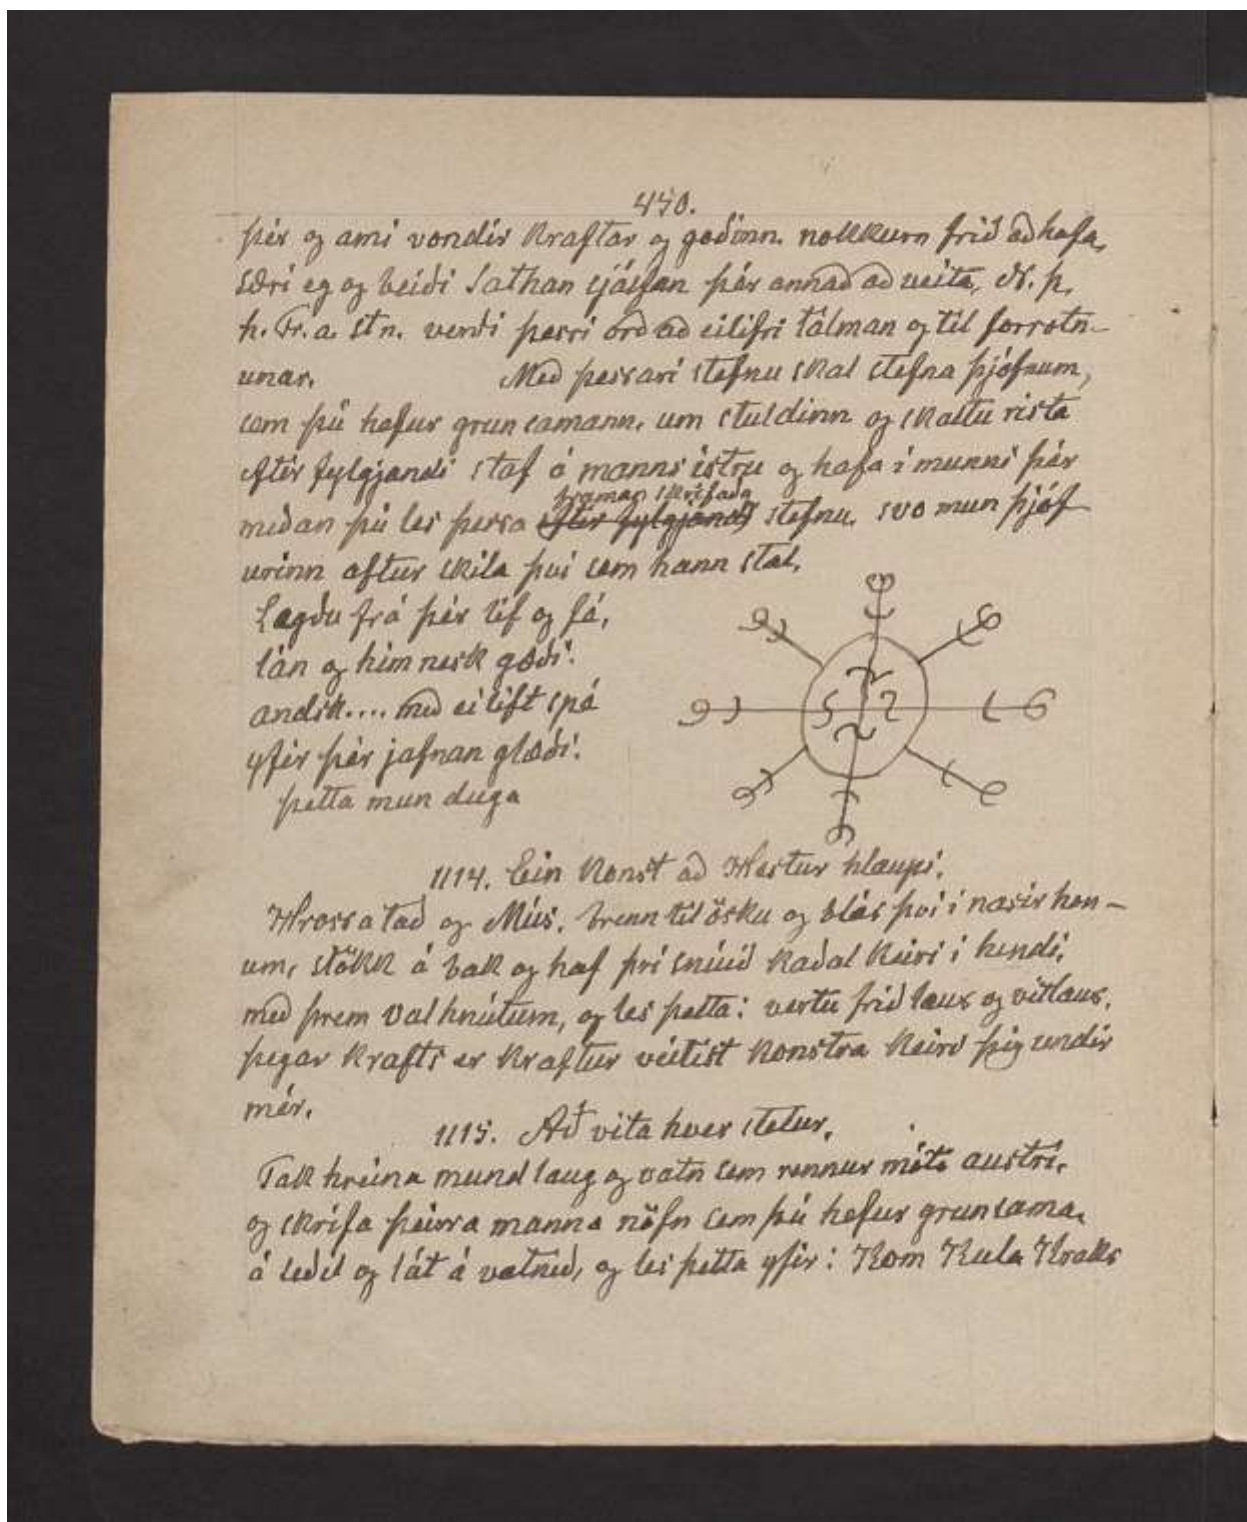 450.
þér og ami vondir kraftar og goðinn. nokkurn frið að hafa,
særi eg og beiði Sathan sjálfan þér annað að veita, N. p.
h. Fr. a. stn. verði þessi orð að eilifri tálman og til forrotn-
unar. Með þessari stefnu skal stefna þjófnum,
sem þú hefur grunsamann, um stuldinn og skaltu rista
eftir fylgjandi staf á manns istru og hafa i munni þér
framan skrifaða
meðan þú les þessa eftir fylgjandi stefnu. svo mun þjóf
urinn aftur skila því sem hann stal.
Legðu frá þér líf og fá,
lán og himnesk gæði.
andsk.... með eilift spá
yfir þér jafnan glæði.
þetta mun duga
1114. Ein konst að Hestur hlaupi.
Hrossa tað og Mús. brenn til ösku og blás því i nasir hon-
um, stökk á bak og haf þrí snúið kaðal keiri i hendi,
með þrem valhnútum, og les þetta: vertu frið laus og vitlaus,
þegar krafts er kraftur veitist konstra keiri þig undir
mér.
1115. Að vita hver stelur.
Tak hreina mundlaug og vatn sem rennur móti austri,
og skrifa þeirra manna nöfn sem þú hefur grunsama,
á seðil og lát á vatnið, og les þetta yfir: Kom Kula Kraks